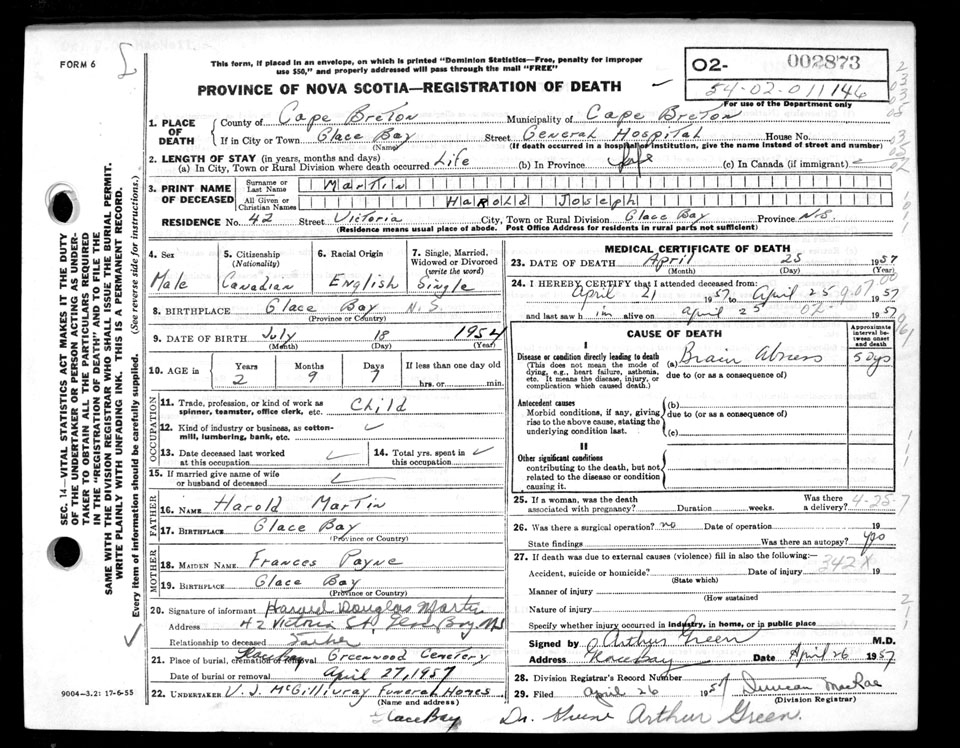 FORM 6
This form, if placed in an envelope, on which is printed "Dominion Statistics—Free, penalty for improper
use $50," and properly addressed will pass through the mail "FREE"
PROVINCE OF NOVA SCOTIA—REGISTRATION OF DEATH
O2- 002873
54-02-011146
For use of the Department only
1. PLACE OF DEATH
County of Cape Breton Municipality of Cape Breton
If in City or Town Glace Bay Street General Hospital House No.
(Name) (If death occurred in a hospital or institution, give the name instead of street and number)
2. LENGTH OF STAY (in years, months and days)
(a) In City, Town or Rural Division where death occurred Life (b) In Province Life (c) In Canada (if immigrant)
3. PRINT NAME OF DECEASED
Surname or Last Name Martin
All Given or Christian Names Harold Joseph
RESIDENCE No. 42 Street Victoria City, Town or Rural Division Glace Bay Province N.S
(Residence means usual place of abode. Post Office Address for residents in rural parts not sufficient)
4. Sex Male
5. Citizenship (Nationality) Canadian
6. Racial Origin English
7. Single, Married, Widowed or Divorced (write the word) Single
8. BIRTHPLACE Glace Bay N.S.
(Province or Country)
9. DATE OF BIRTH July 18 1954
(Month) (Day) (Year)
10. AGE Years 2 Months 9 Days 7 If less than one day old
hrs. or min.
OCCUPATION
11. Trade, profession, or kind of work as spinner, teamster, office clerk, etc. Child
12. Kind of industry or business, as cotton-mill, lumbering, bank, etc.
13. Date deceased last worked at this occupation
14. Total yrs. spent in this occupation
15. If married give name of wife or husband of deceased
FATHER
16. NAME Harold Martin
17. BIRTHPLACE Glace Bay
(Province or Country)
MOTHER
18. MAIDEN NAME Frances Payne
19. BIRTHPLACE Glace Bay
(Province or Country)
20. Signature of informant Douglas Martin
Address 42 Victoria St, Glace Bay, NS
Relationship to deceased Father
21. Place of burial, cremation or removal Glace Bay Greenwood Cemetery
Date of burial or removal April 27, 1957
22. UNDERTAKER V. J. McGillivray Funeral Homes
(Name and address)
Glace Bay
9004—3.21 17-6-55
MEDICAL CERTIFICATE OF DEATH
23. DATE OF DEATH April 25 1957
(Month) (Day) (Year)
24. I HEREBY CERTIFY that I attended deceased from:
April 21 1957 to April 25 1957
and last saw him alive on April 25 1957
CAUSE OF DEATH
Approximate interval between onset and death
I
Disease or condition directly leading to death
(This does not mean the mode of dying, e.g., heart failure, asthenia, etc. It means the disease, injury, or complication which caused death.)
(a) Brain Abscess 5 Dys
due to (or as a consequence of)
Antecedent causes
Morbid conditions, if any, giving rise to the above cause, stating the underlying condition last.
(b)
due to (or as a consequence of)
(c)
II
Other significant conditions
contributing to the death, but not related to the disease or condition causing it.
25. If a woman, was the death associated with pregnancy? Duration weeks. Was there a delivery?
4-25-7
26. Was there a surgical operation? no Date of operation 19
State findings Was there an autopsy?
27. If death was due to external causes (violence) fill in also the following:
342X
Accident, suicide or homicide? Date of injury 19
(State which)
Manner of injury
(How sustained)
Nature of injury
Specify whether injury occurred in industry, in home, or in public place
Signed by Arthur Green M.D.
Address Glace Bay Date April 26 1957
28. Division Registrar's Record Number
29. Filed April 26 1957 Duncan MacRae
(Division Registrar)
Dr. Arthur Green.
SEC. 14—VITAL STATISTICS ACT MAKES IT THE DUTY
OF THE UNDERTAKER OR PERSON ACTING AS UNDER-
TAKER TO OBTAIN ALL THE PARTICULARS REQUIRED
IN THE "REGISTRATION OF DEATH" AND TO FILE THE
SAME WITH THE DIVISION REGISTRAR WHO SHALL ISSUE THE BURIAL PERMIT.
WRITE PLAINLY WITH UNFADING INK. THIS IS A PERMANENT RECORD.
Every item of information should be carefully supplied. (See reverse side for instructions.)